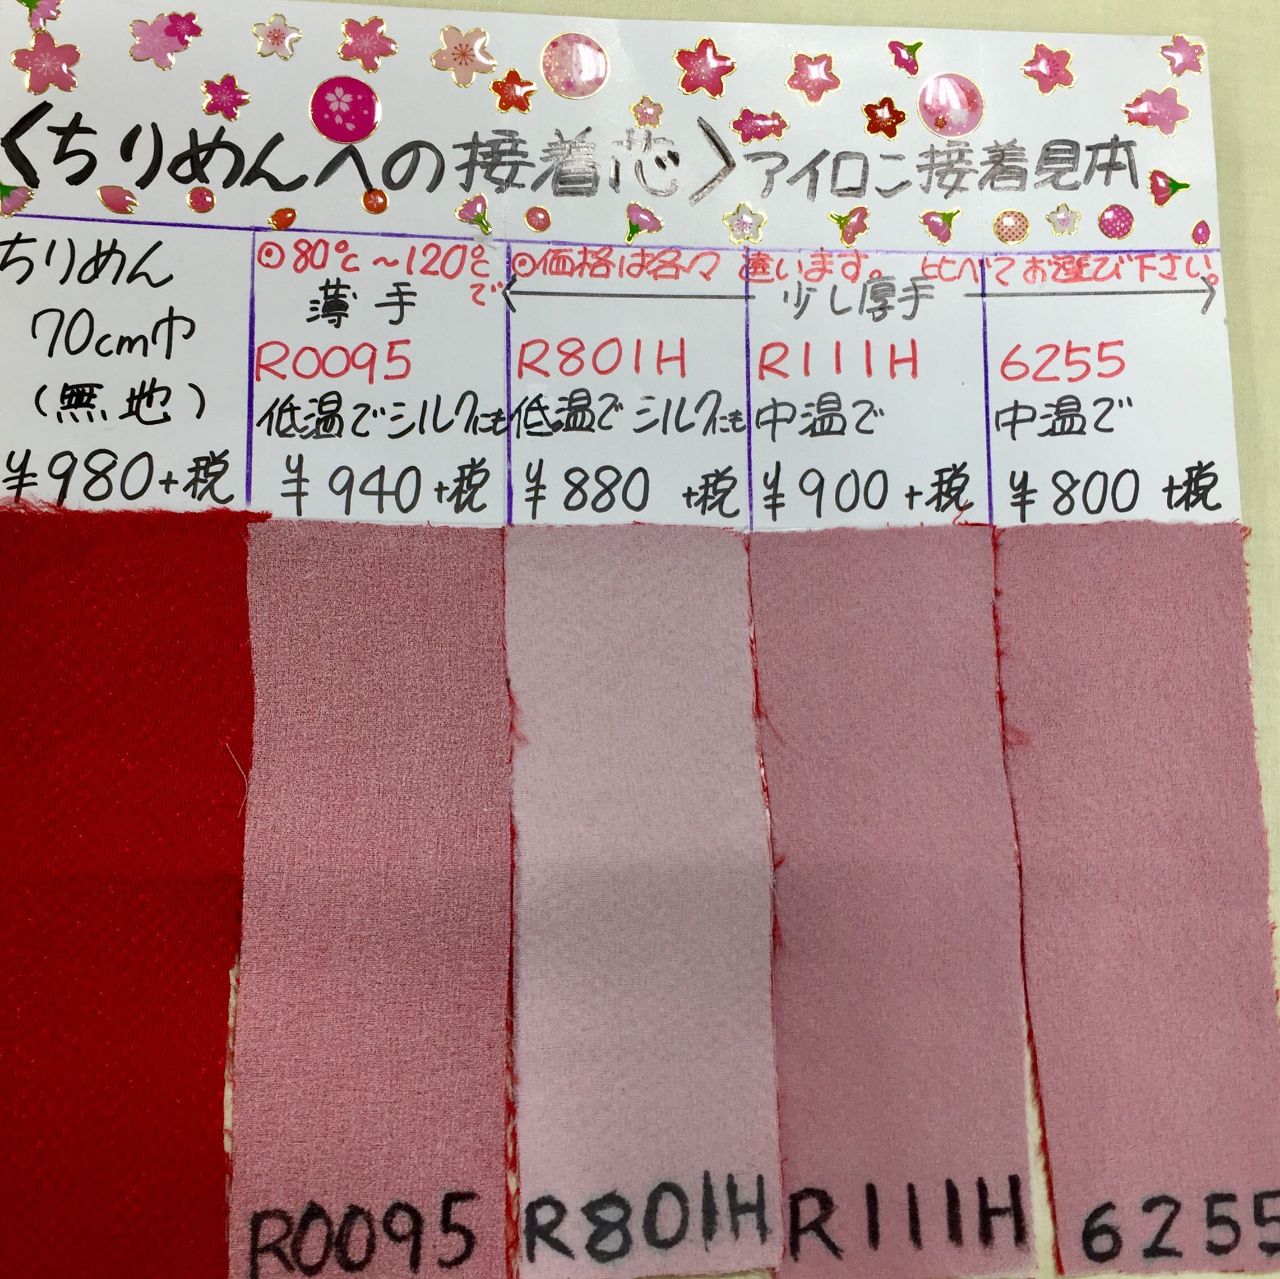 〈ちりめんへの接着芯〉アイロン接着見本
ちりめん
70cm巾
(無地)
¥980+税
⊙80℃~120℃
で
薄手
R0095
低温でシルクにも
¥940+税
⊙価格は各々違います。比べてお選び下さい。
少し厚手
R801H
低温でシルクにも
¥880+税
R111H
中温で
¥900+税
6255
中温で
¥800+税
R0095
R801H
R111H
6255